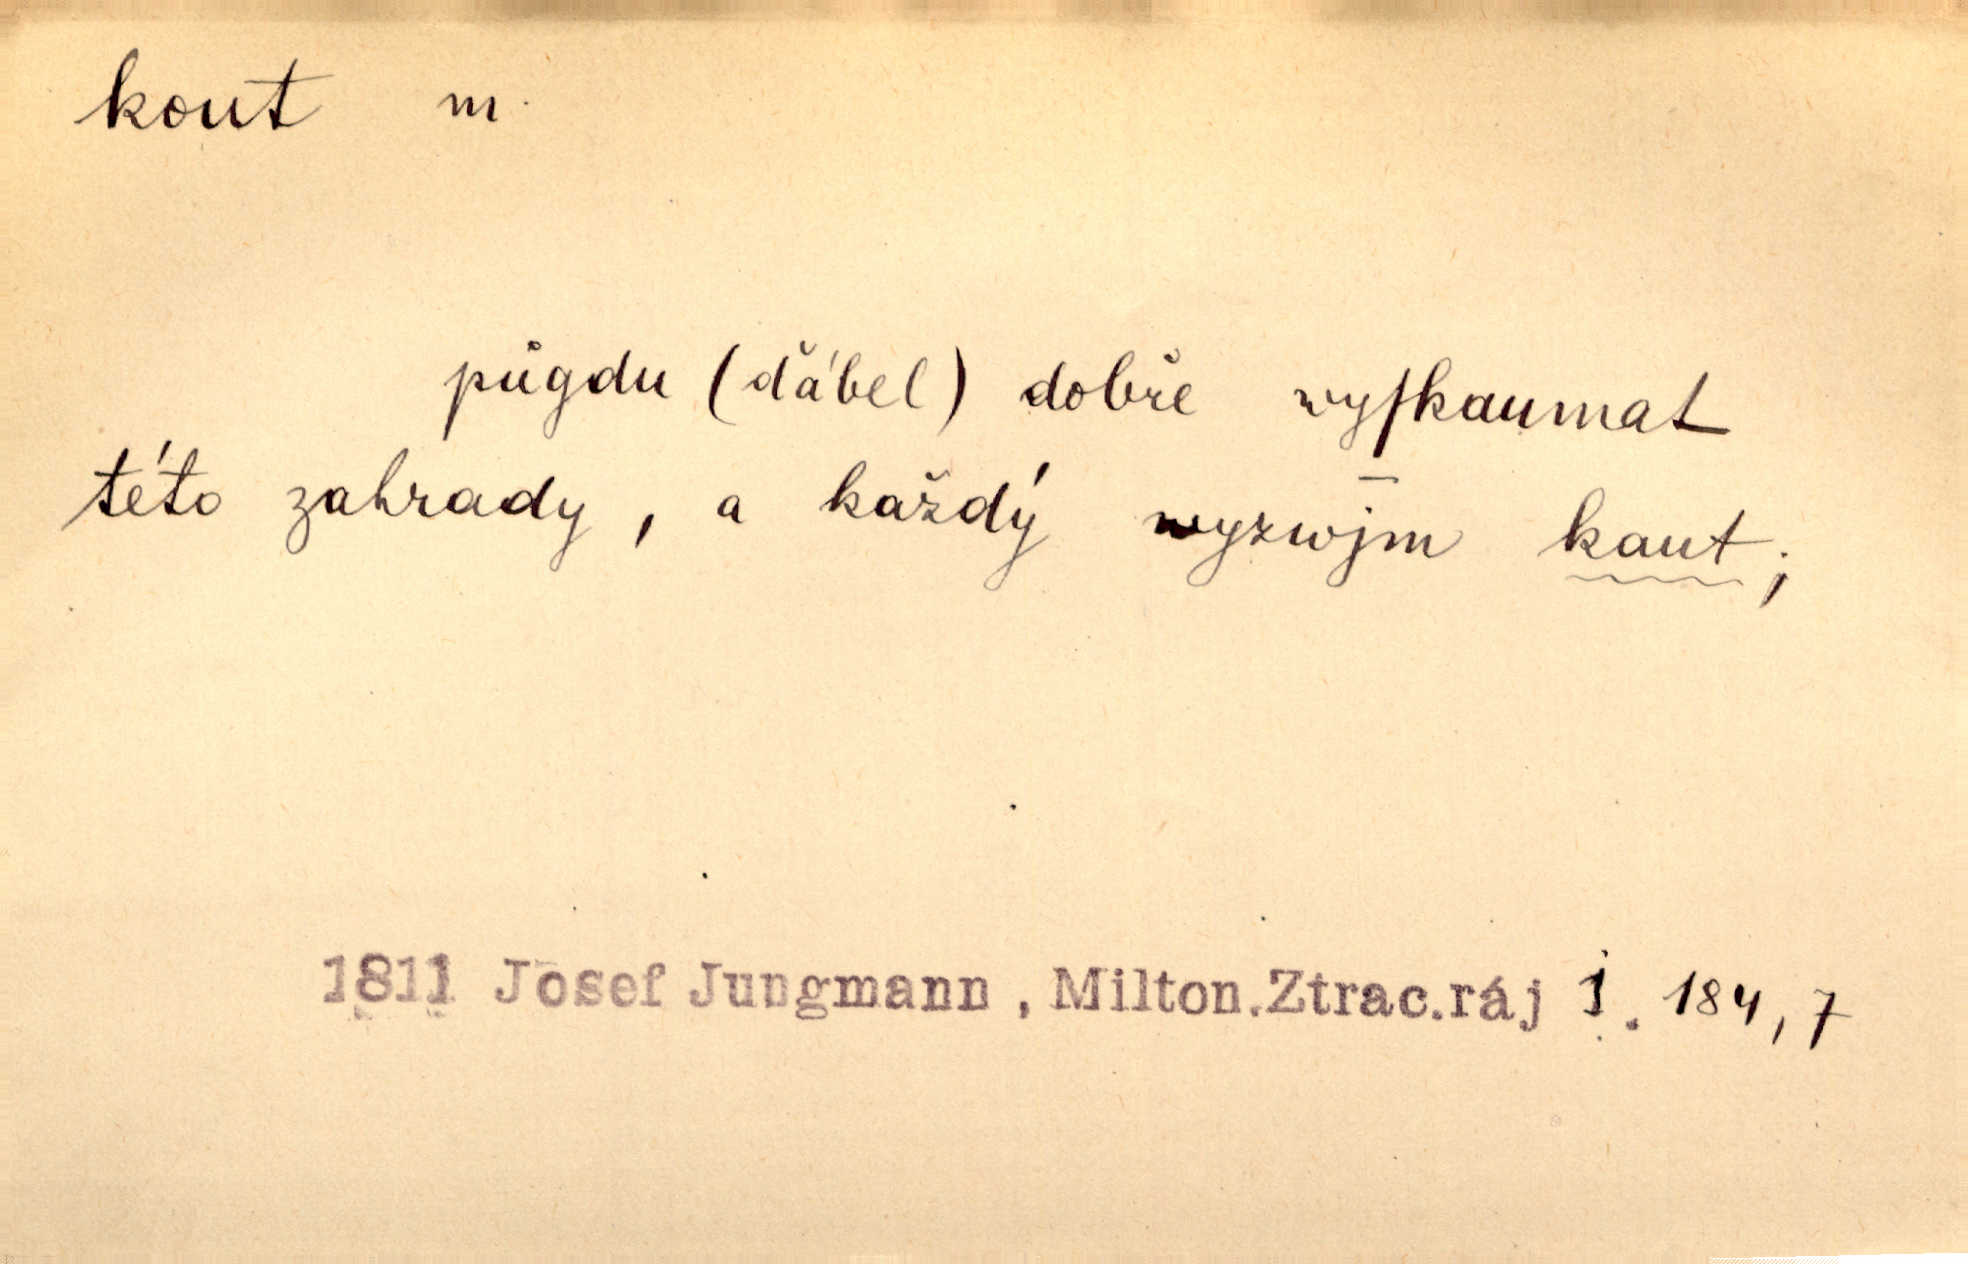 kout m.
půgdu (ďábel) dobře wyſkaumat
této zahrady, a každý wyzwjm kaut;
1811 Josef Jungmann, Milton.Ztrac.ráj 1. 184, 7